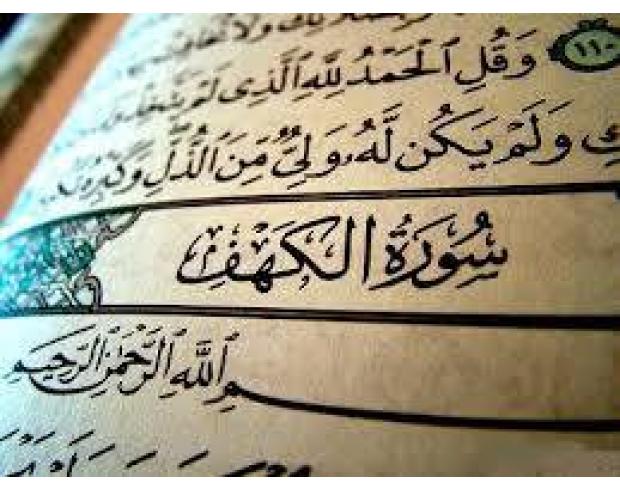 وَلَا تُخَافِتْ
١١٠ وَقُلِ ٱلْحَمْدُ لِلَّهِ ٱلَّذِى لَمْ يَتَّخِذْ
وَلَمْ يَكُن لَّهُۥ وَلِىٌّ مِّنَ ٱلذُّلِّ وَكَبِّرْهُ
سُورَةُ الكَهْفِ
بِسْمِ ٱللَّهِ ٱلرَّحْمَٰنِ ٱلرَّحِيمِ